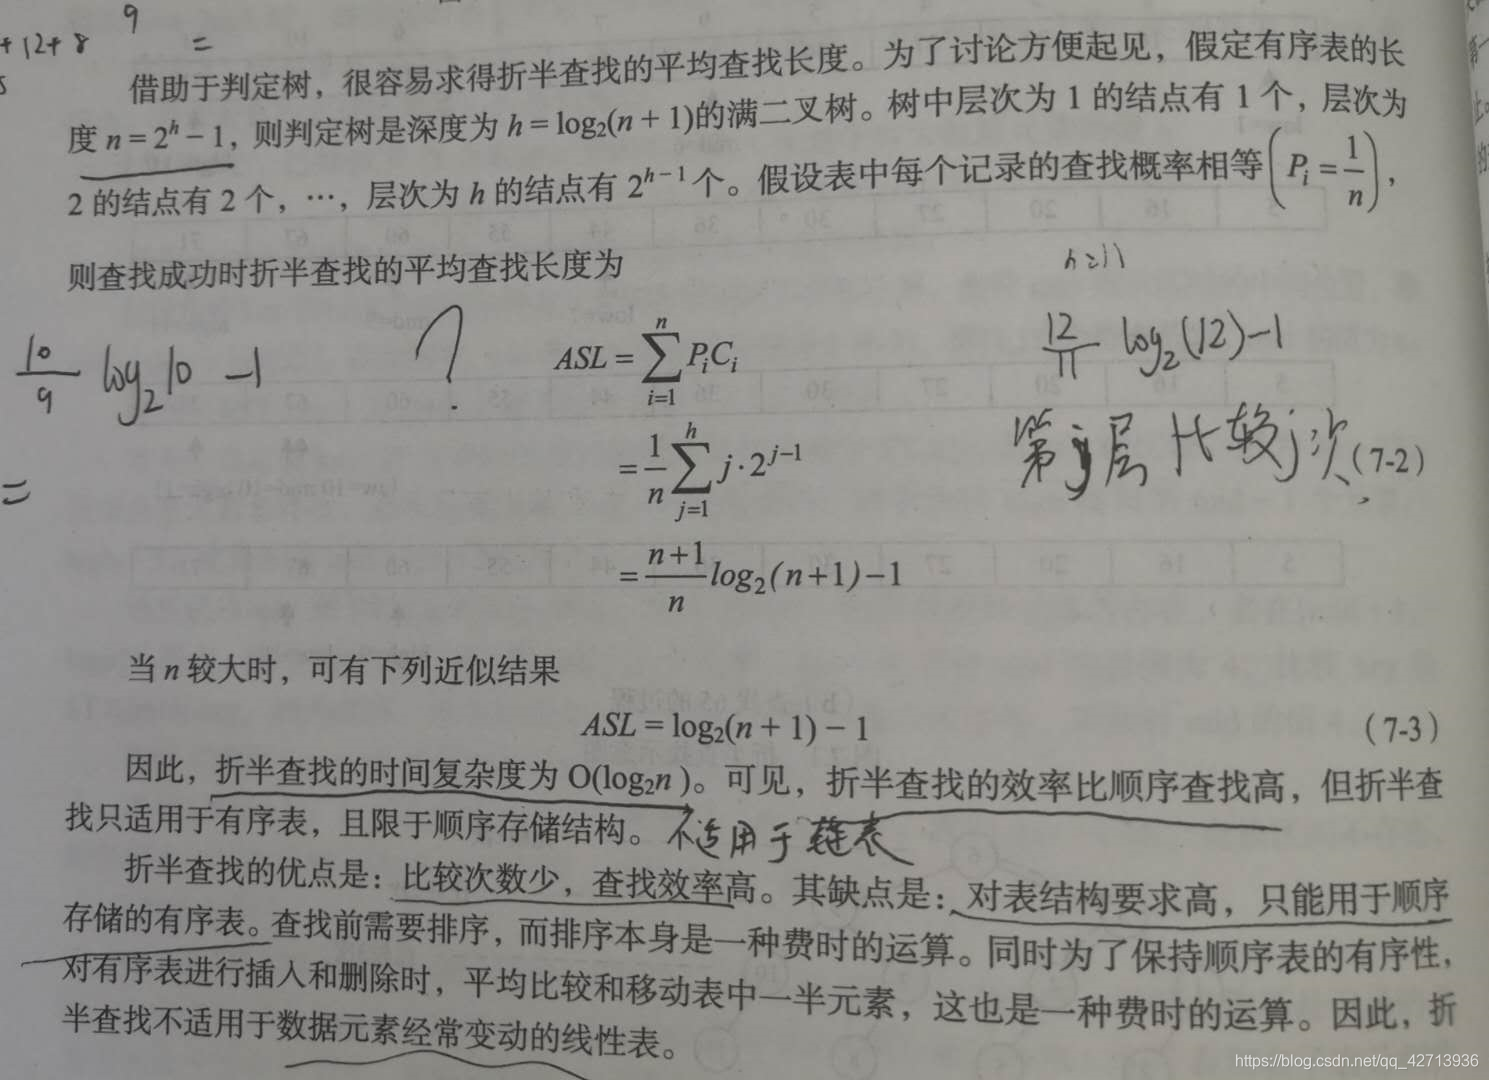 9
+12+8 =
借助于判定树，很容易求得折半查找的平均查找长度。为了讨论方便起见，假定有序表的长
度 n = 2^h − 1，则判定树是深度为 h = log₂(n + 1)的满二叉树。树中层次为 1 的结点有 1 个，层次为
2 的结点有 2 个，…，层次为 h 的结点有 2^(h−1) 个。假设表中每个记录的查找概率相等(P_i = 1/n)，
则查找成功时折半查找的平均查找长度为
n=11
10/9 log₂10 −1
?
ASL = ∑_{i=1}^{n} P_i C_i
12/11 log₂(12)−1
= 1/n ∑_{j=1}^{h} j·2^(j−1)
第j层 比较j次
(7-2)
=
= (n+1)/n log₂(n+1)−1
当 n 较大时，可有下列近似结果
ASL = log₂(n + 1) − 1 (7-3)
因此，折半查找的时间复杂度为 O(log₂n)。可见，折半查找的效率比顺序查找高，但折半查
找只适用于有序表，且限于顺序存储结构。 不适用于链表
折半查找的优点是：比较次数少，查找效率高。其缺点是：对表结构要求高，只能用于顺序
存储的有序表。查找前需要排序，而排序本身是一种费时的运算。同时为了保持顺序表的有序性，
对有序表进行插入和删除时，平均比较和移动表中一半元素，这也是一种费时的运算。因此，折
半查找不适用于数据元素经常变动的线性表。
https://blog.csdn.net/qq_42713936